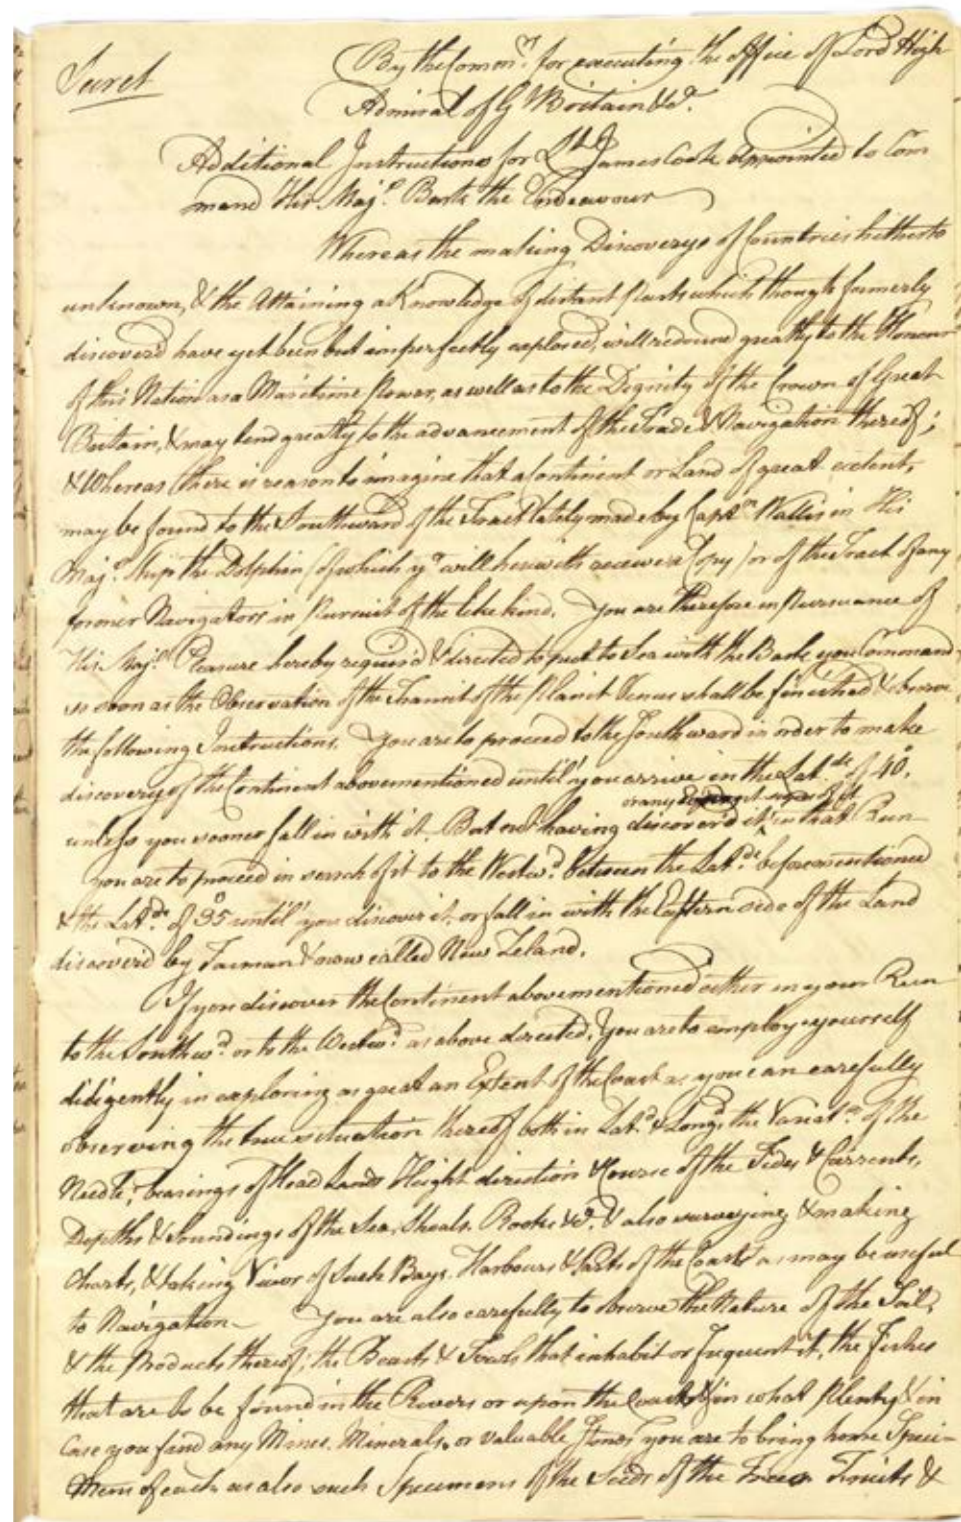 Secret
By the Comm.rs for executing the Office of Lord High
Admiral of G Britain &c.
Additional Instructions for Lt James Cook appointed to Com
mand His Maj.s Bark the Endeavour
Whereas the making Discoverys of Countries hitherto
unknown, & the Attaining a Knowledge of distant Parts which though formerly
discover'd have yet been but imperfectly explored, will redound greatly to the Honour
of this Nation as a Maritime Power, as well as to the Dignity of the Crown of Great
Britain, & may tend greatly to the advancement of the Trade & Navigation thereof;
& Whereas there is reason to imagine that a Continent or Land of great extent,
may be found to the Southward of the Tract lately made by Capt.n Wallis in His
Maj.s Ship the Dolphin (of which you will herewith receive a Copy) or of the Tract of any
former Navigators in Pursuit of the like kind. You are therefore in Pursuance of
His Maj.s Pleasure hereby requir'd & directed to put to Sea with the Bark you Command
so soon as the Observation of the Transit of the Planet Venus shall be finished & observe
the following Instructions. You are to proceed to the Southward in order to make
discovery of the Continent abovementioned until you arrive in the Lat.de of 40°,
unless you sooner fall in with it. But not having discover'd it or any signs of it in that Run
you are to proceed in search of it to the Westw.d between the Lat.de beforementioned
& the Lat.de of 35° until you discover it, or fall in with the Eastern side of the Land
discover'd by Tasman & now called New Zeland.
If you discover the Continent abovementioned either in your Run
to the Southw.d or to the Westw.d as above directed, You are to employ yourself
diligently in exploring as great an Extent of the Coast as you can carefully
observing the true situation thereof both in Lat.de & Long.de the Variat.n of the
Needle; bearings of Head Lands Height direction & Course of the Tides & Currents,
Depths & Soundings of the Sea, Shoals, Rocks &c. & also surveying & making
Charts, & taking Views of Such Bays, Harbours & Parts of the Coasts as may be useful
to Navigation. You are also carefully to observe the Nature of the Soil,
& the Products thereof; the Beasts & Fowls that inhabit or frequent it, the Fishes
that are to be found in the Rivers or upon the Coast & in what Plenty & in
Case you find any Mines, Minerals, or valuable Stones you are to bring home Speci-
mens of each, as also such Specimens of the Seeds of the Trees Fruits &